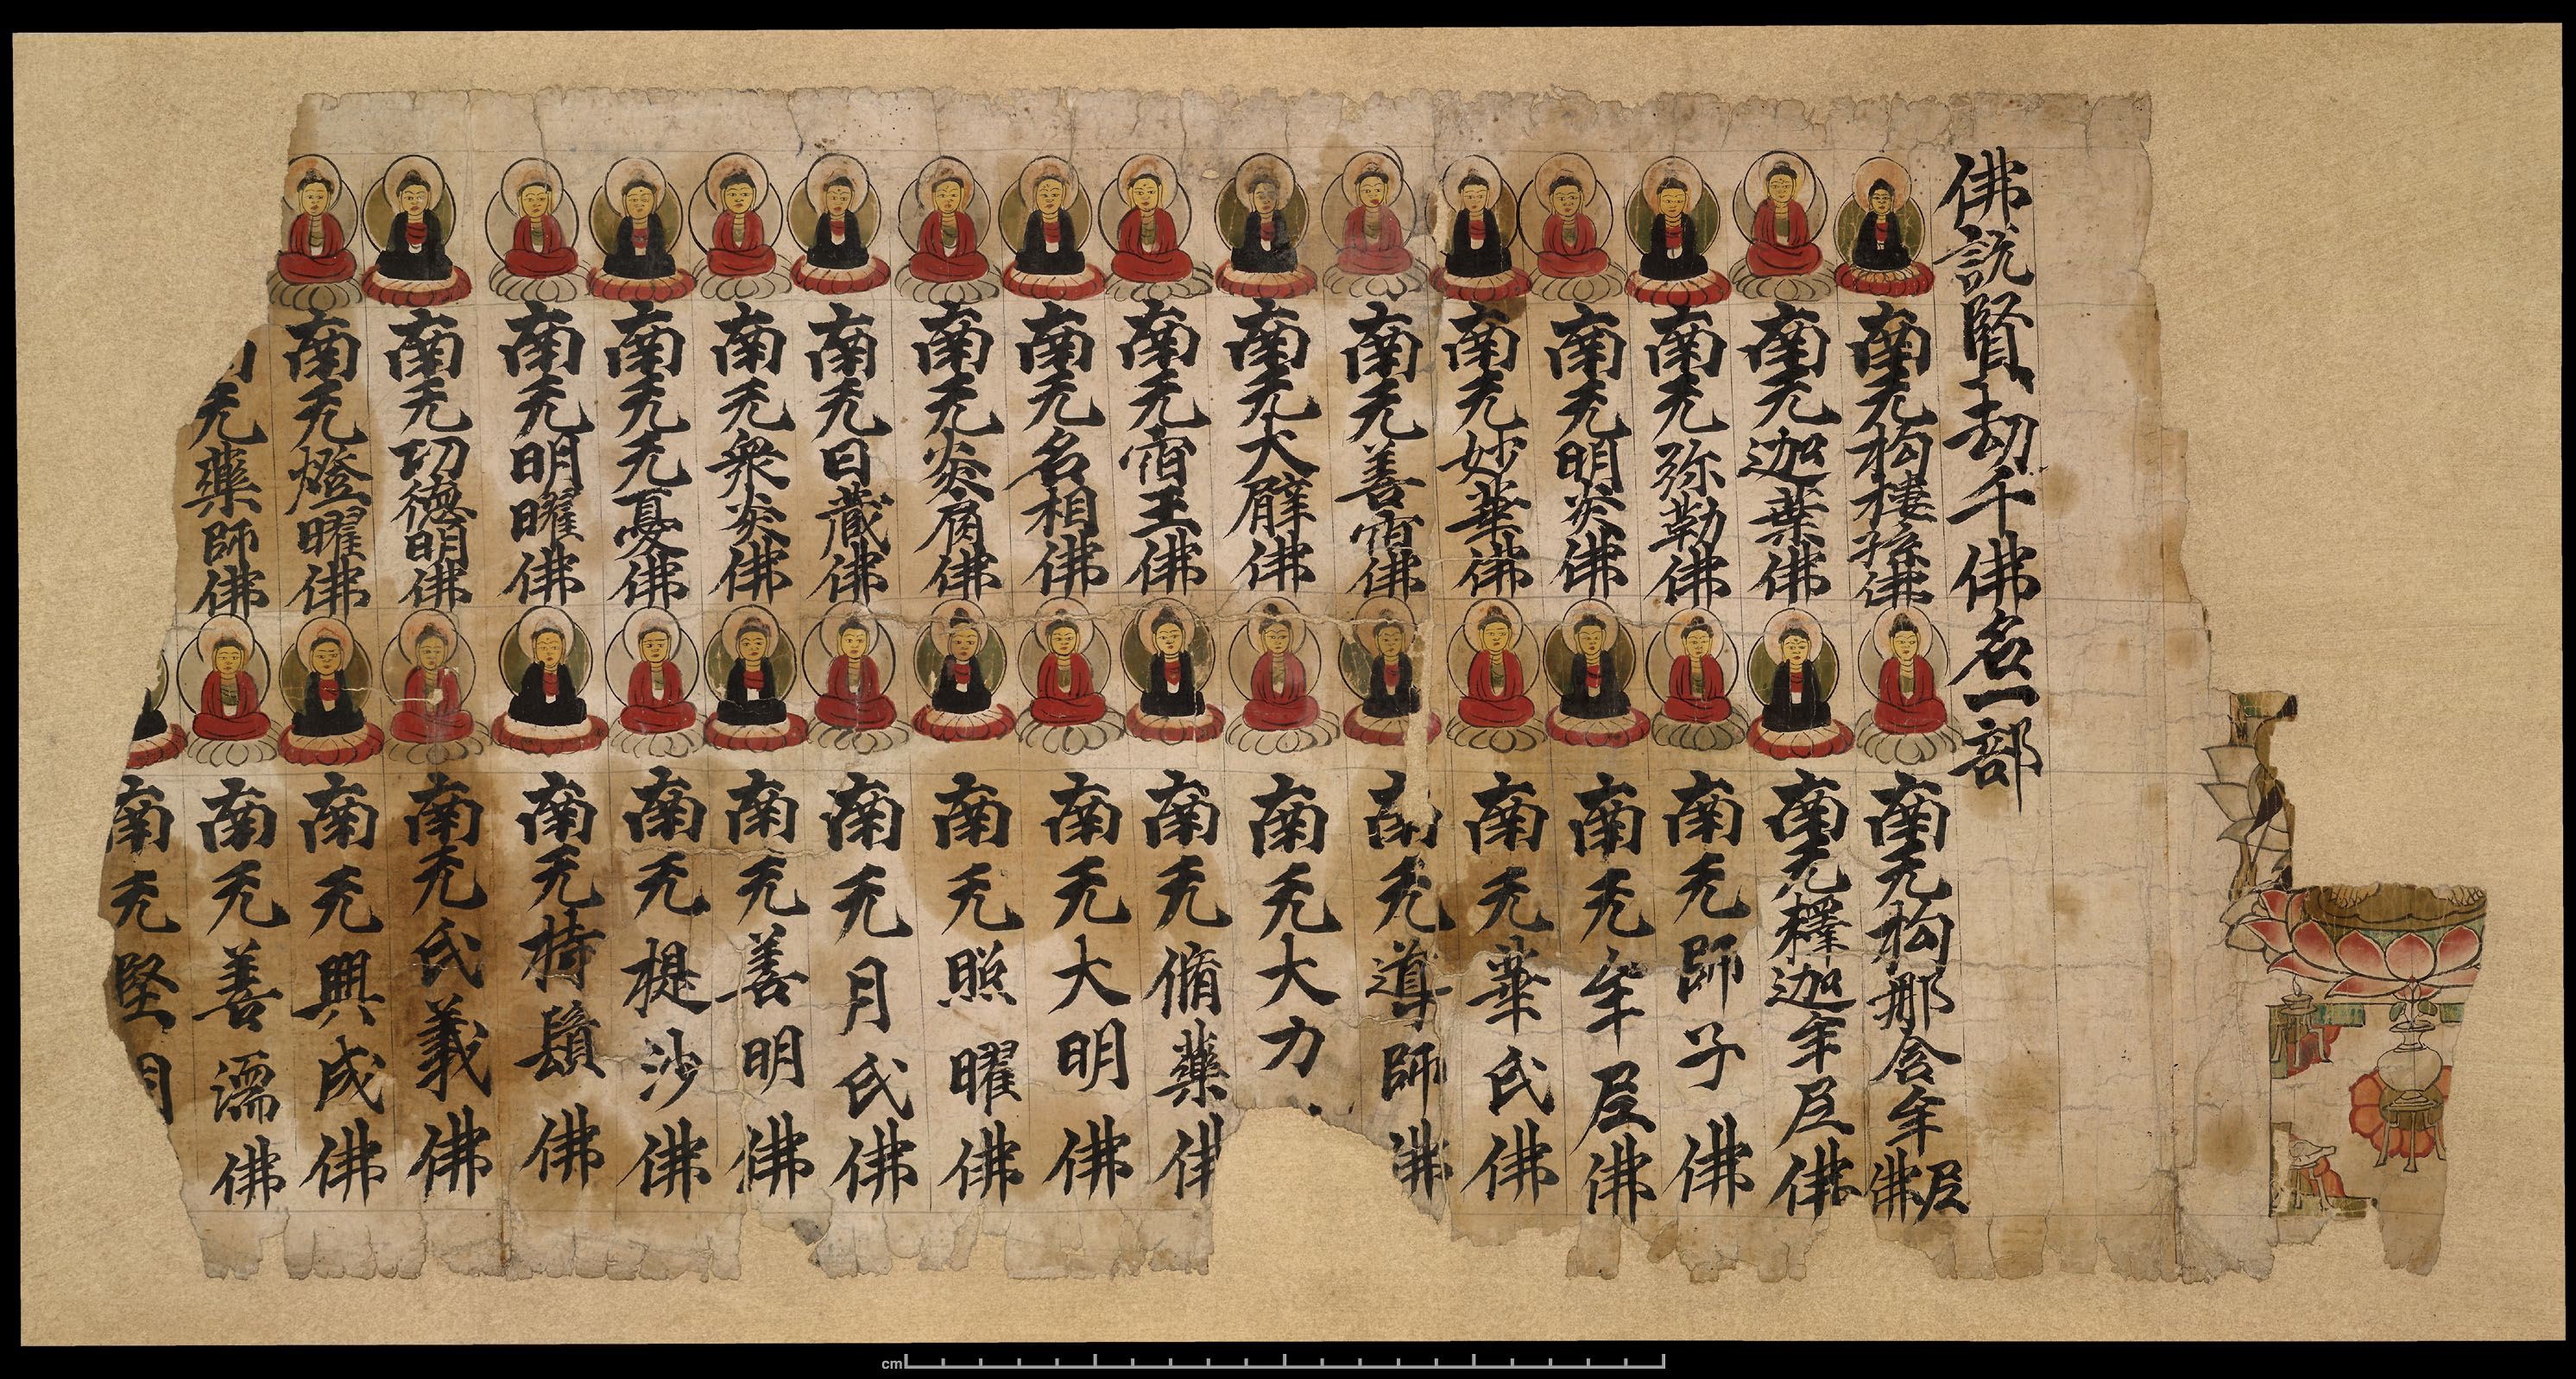 佛說賢劫千佛名一部
南无构樓孫佛
南无构那含牟尼佛
南无迦葉佛
南无釋迦牟尼佛
南无弥勒佛
南无師子佛
南无明炎佛
南无牟尼佛
南无妙華佛
南无華氏佛
南无善宿佛
南无導師佛
南无大臂佛
南无大力
南无宿王佛
南无脩藥佛
南无名相佛
南无大明佛
南无炎肩佛
南无照曜佛
南无日藏佛
南无月氏佛
南无衆炎佛
南无善明佛
南无无憂佛
南无提沙佛
南无明曜佛
南无持鬚佛
南无功德明佛
南无氏義佛
南无燈曜佛
南无興成佛
无藥師佛
南无善濡佛
南无堅